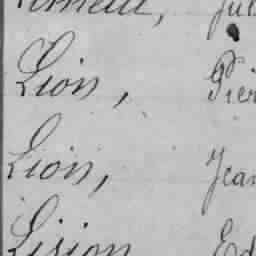 Lion, Pier
Lion, Jean
Lision Ed